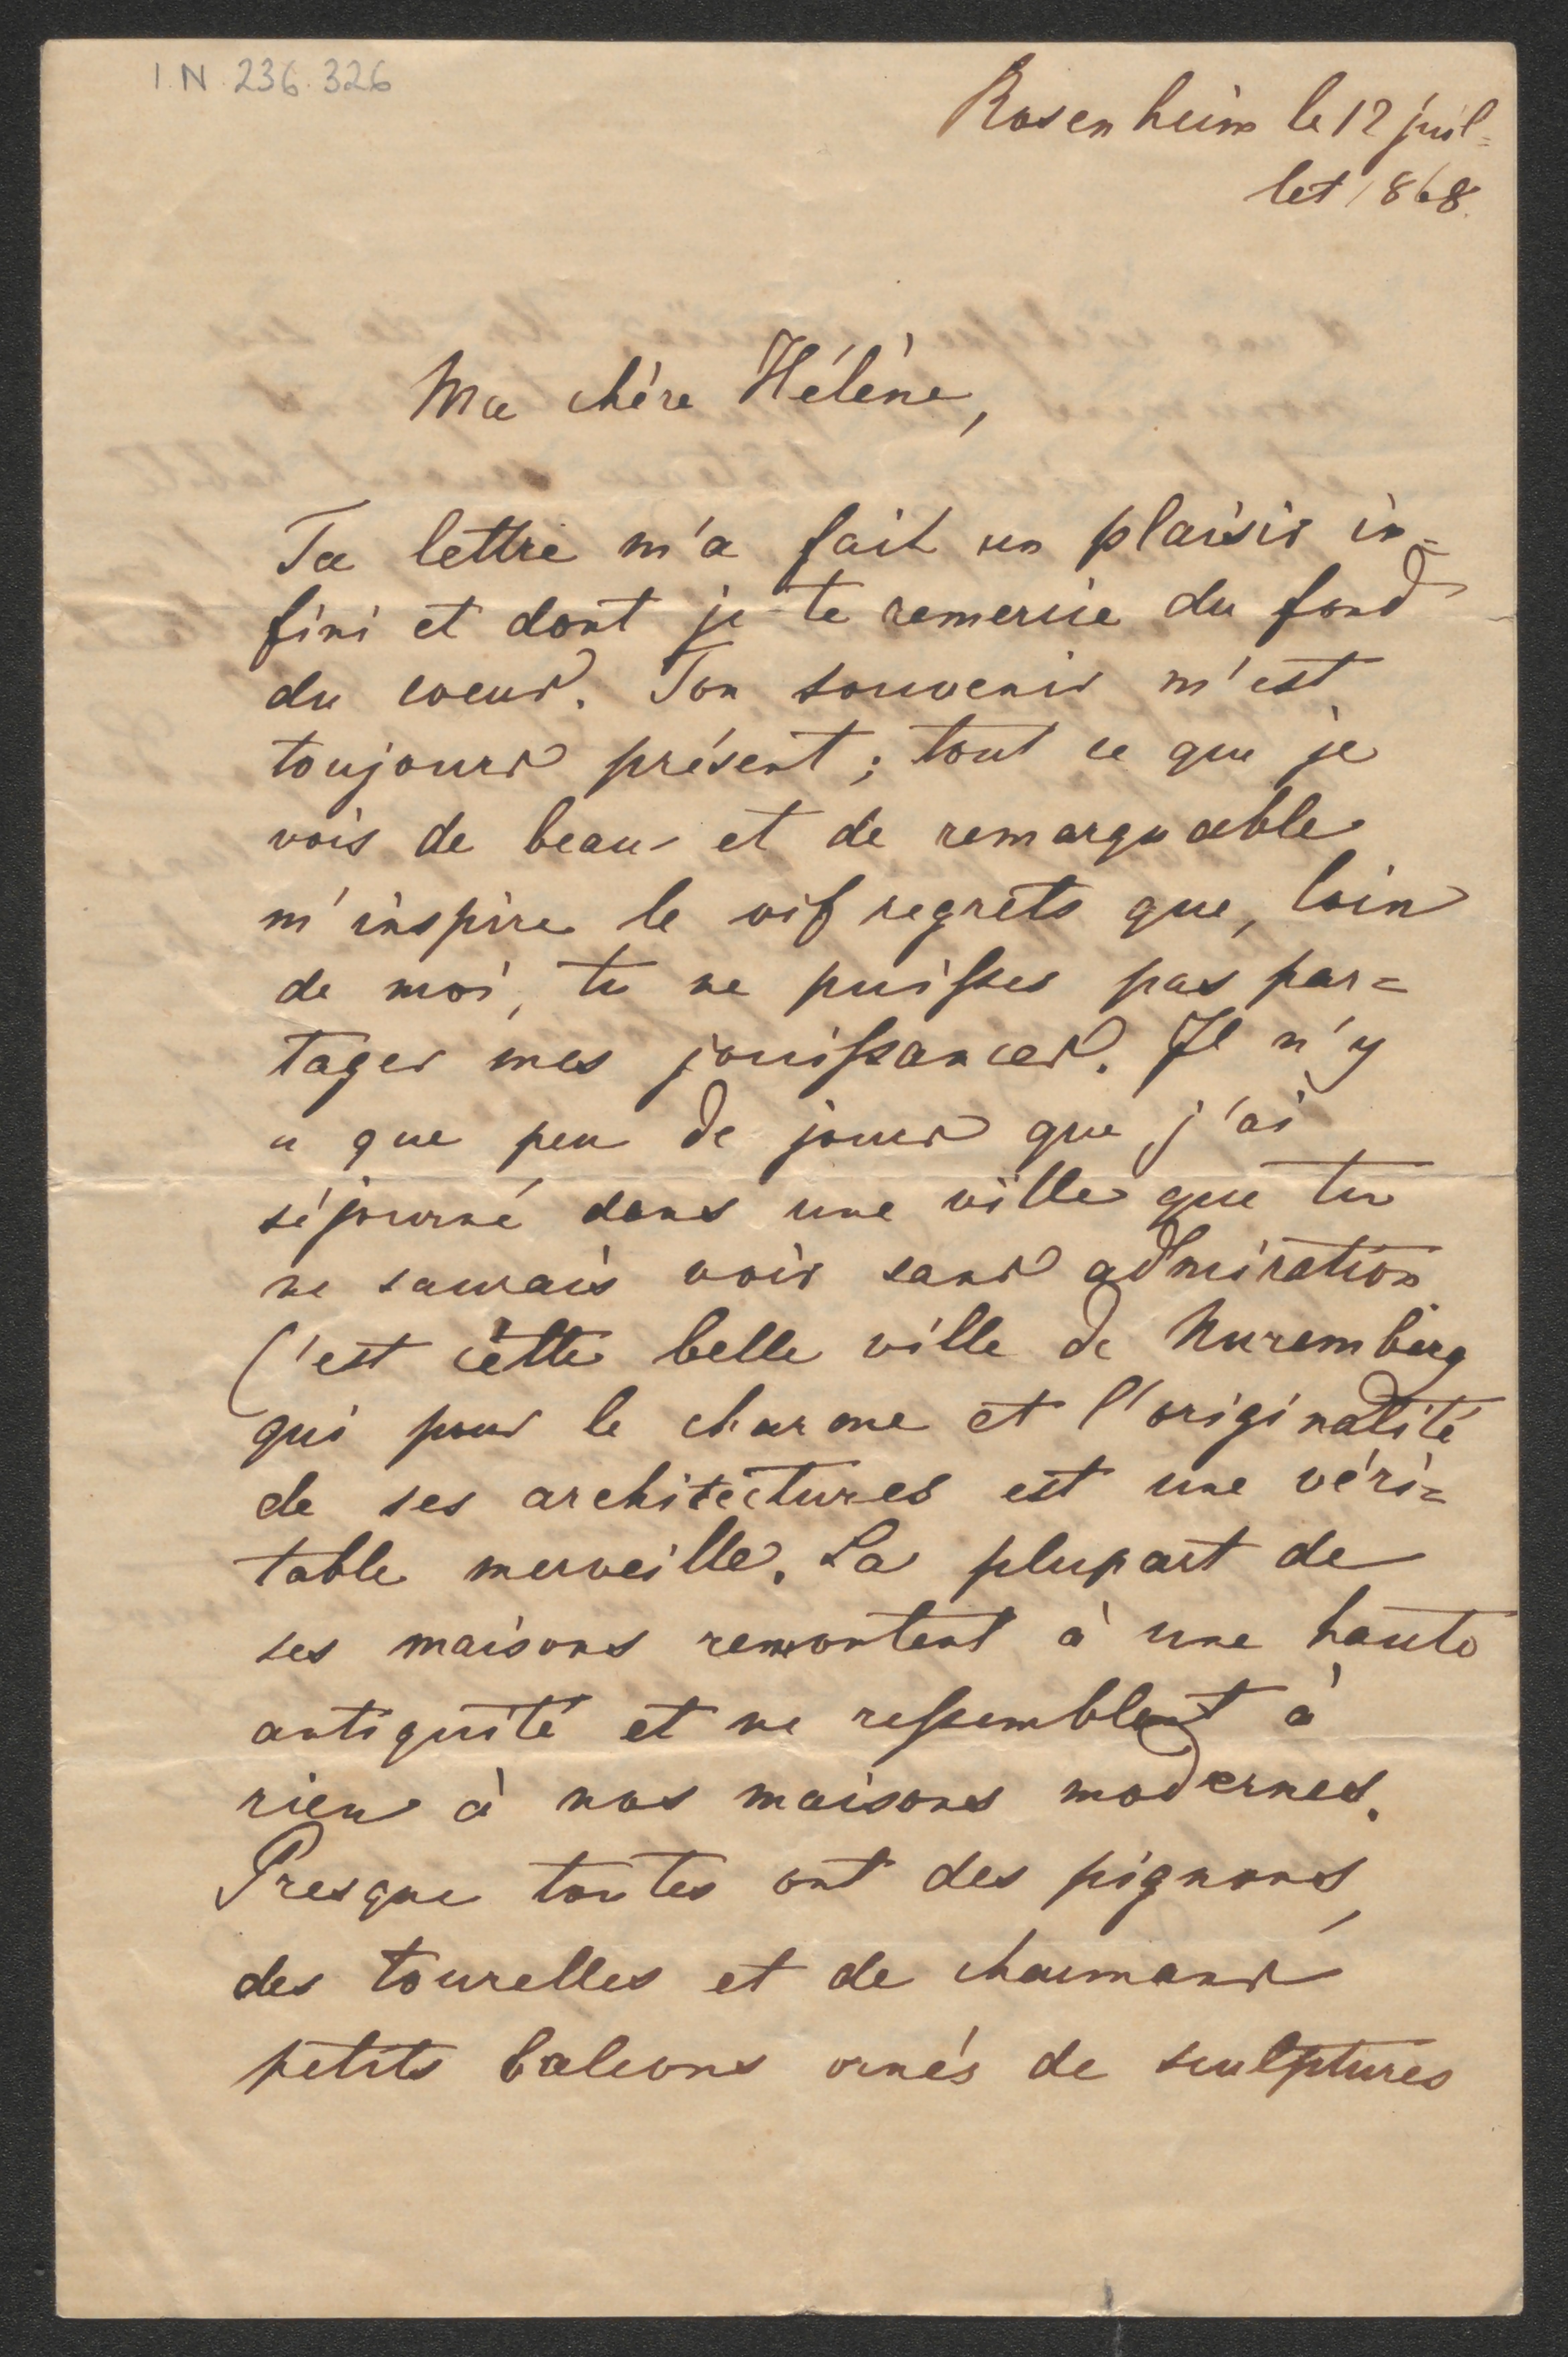 I.N. 236.326
Rosenheim le 12 juil-
let 1868.
Ma chère Hélène,
Ta lettre m'a fait un plaisir in-
fini et dont je te remercie du fond
du coeur. Ton souvenir m'est
toujours présent; tout ce que je
vois de beau et de remarquable
m'inspire le vif regrets que, loin
de moi, tu ne puisses pas par=
tager mes jouissances. Il n'y
a que peu de jours que j'ai
séjourné dans une ville que tu
ne saurais voir sans admiration
C'est cette belle ville de Nuremberg
qui pour le charme et l'originalité
de ses architectures est une véri=
table merveille. La plupart de
ses maisons remontent à une haute
antiquité et ne ressemblent à
rien à nos maisons modernes.
Presque toutes ont des pignons,
des tourelles et de charmans
petits balcons ornés de sculptures